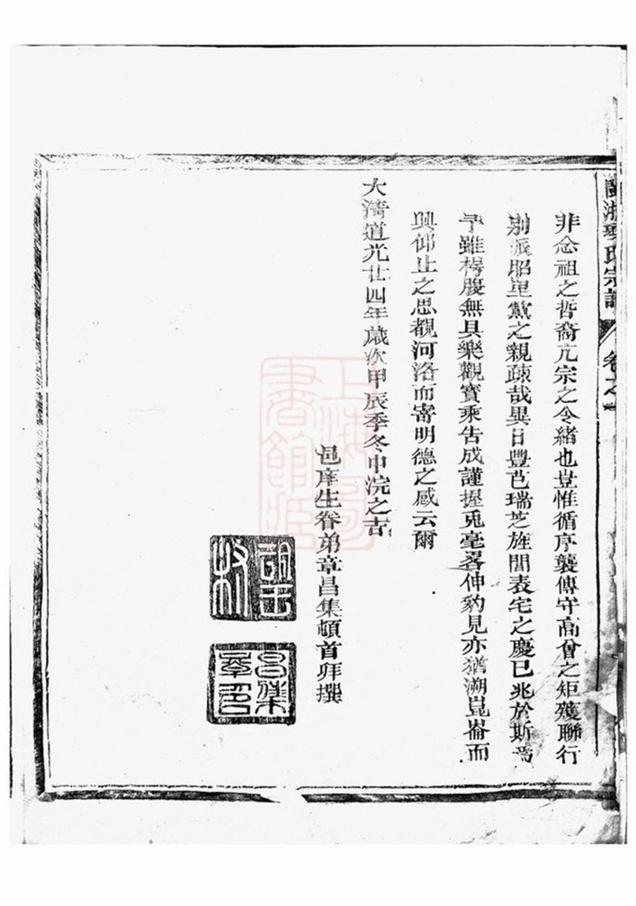 氏宗譜 卷之一
非念祖之哲裔亢宗之令緒也豈惟循序襲傳守高曾之矩矱聯行
別派昭里黨之親疎哉異日豐芑瑞芝旌閭表宅之慶已兆於斯焉
予雖枵腹無具樂觀寶乘告成謹握兎毫畧伸豹見亦猶溯崑崙而
興仰止之思覩河洛而寄明德之感云爾
大清道光廿四年歲次甲辰季冬中浣之吉
邑庠生眷弟章昌集頓首拜撰
昌集
上海圖書館藏